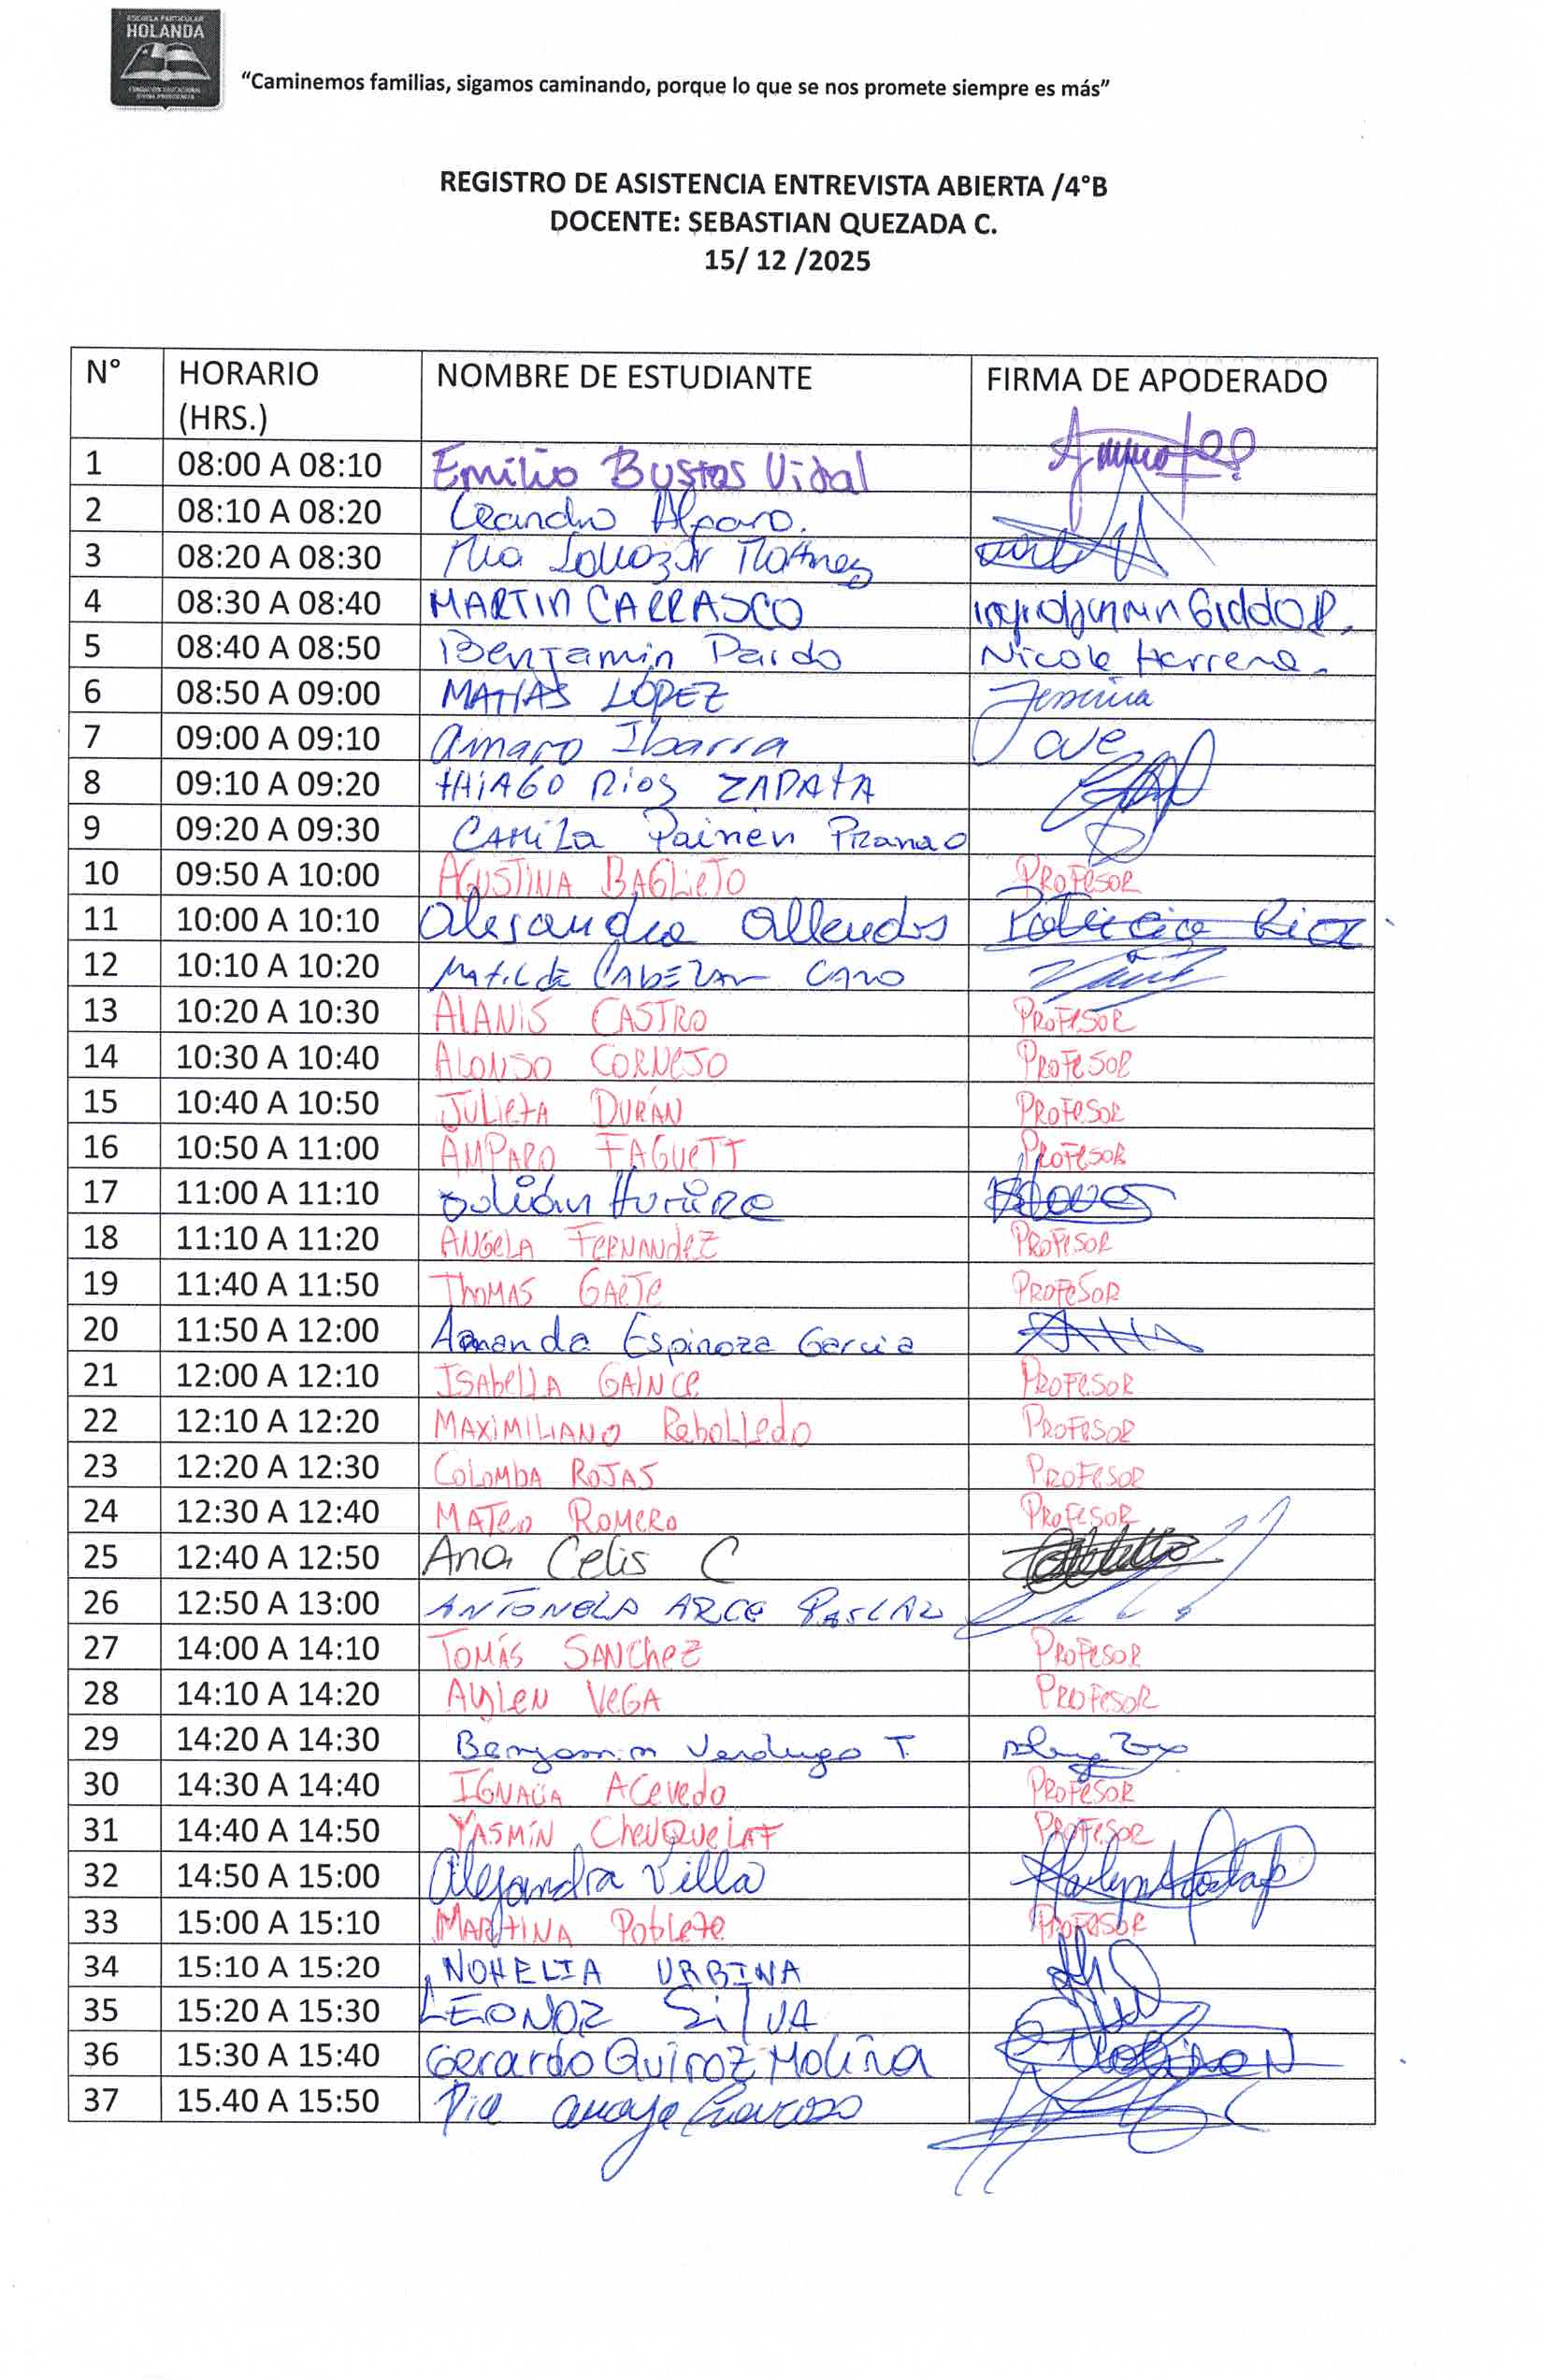 ESCUELA PARTICULAR
HOLANDA
FUNDACIÓN EDUCACIONAL
DIVINA PROVIDENCIA
“Caminemos familias, sigamos caminando, porque lo que se nos promete siempre es más”
REGISTRO DE ASISTENCIA ENTREVISTA ABIERTA /4°B
DOCENTE: SEBASTIAN QUEZADA C.
15/ 12 /2025
N° HORARIO (HRS.) NOMBRE DE ESTUDIANTE FIRMA DE APODERADO
1 08:00 A 08:10 Emilio Bustos Vidal
2 08:10 A 08:20 Leandro Alfaro.
3 08:20 A 08:30 Mia
4 08:30 A 08:40 MARTIN CARRASCO
5 08:40 A 08:50 Benjamin Pardo Nicole Herrera.
6 08:50 A 09:00 MATIAS LÓPEZ Jessenia
7 09:00 A 09:10 Amaro Ibarra
8 09:10 A 09:20 tHiAGO Rios ZAPAtA
9 09:20 A 09:30 CAMiLa Painen
10 09:50 A 10:00 AGUSTINA BAGLieTO PROFeSOR
11 10:00 A 10:10 Alejandra Allendes
12 10:10 A 10:20 Matilde CABEZAS CARO
13 10:20 A 10:30 ALANiS CASTRO PROFeSOR
14 10:30 A 10:40 ALONSO CORNeJO PROFeSOR
15 10:40 A 10:50 JULieTA DURÁN PROFeSOR
16 10:50 A 11:00 AMPARO FAGUeTT PROFeSOR
17 11:00 A 11:10 Julián
18 11:10 A 11:20 ANGeLA FeRNANdeZ PROFeSOR
19 11:40 A 11:50 ThOMAS GAeTe PROFeSOR
20 11:50 A 12:00 Amanda Espinoza Garcia
21 12:00 A 12:10 ISAbeLLA GAINCe PROFeSOR
22 12:10 A 12:20 MAXiMiLiANO RebOLLedO PROFeSOR
23 12:20 A 12:30 COLOMbA ROJAS PROFeSOR
24 12:30 A 12:40 MATeO ROMeRO PROFeSOR
25 12:40 A 12:50 Ana Celis C
26 12:50 A 13:00 ANTONELA ARCE
27 14:00 A 14:10 TOMÁS SANCheZ PROFeSOR
28 14:10 A 14:20 AyLeN VeGA PROFeSOR
29 14:20 A 14:30 Benjamin Verdugo T.
30 14:30 A 14:40 IGNACIA ACevedo PROFeSOR
31 14:40 A 14:50 YASMÍN CheUQUeLAF PROFeSOR
32 14:50 A 15:00 Alejandra Villa
33 15:00 A 15:10 MARTINA PObLeTe PROFeSOR
34 15:10 A 15:20 NOHELIA URBINA
35 15:20 A 15:30 LEONOR SilVA
36 15:30 A 15:40 Gerardo Quiroz Molina
37 15.40 A 15:50 Pia